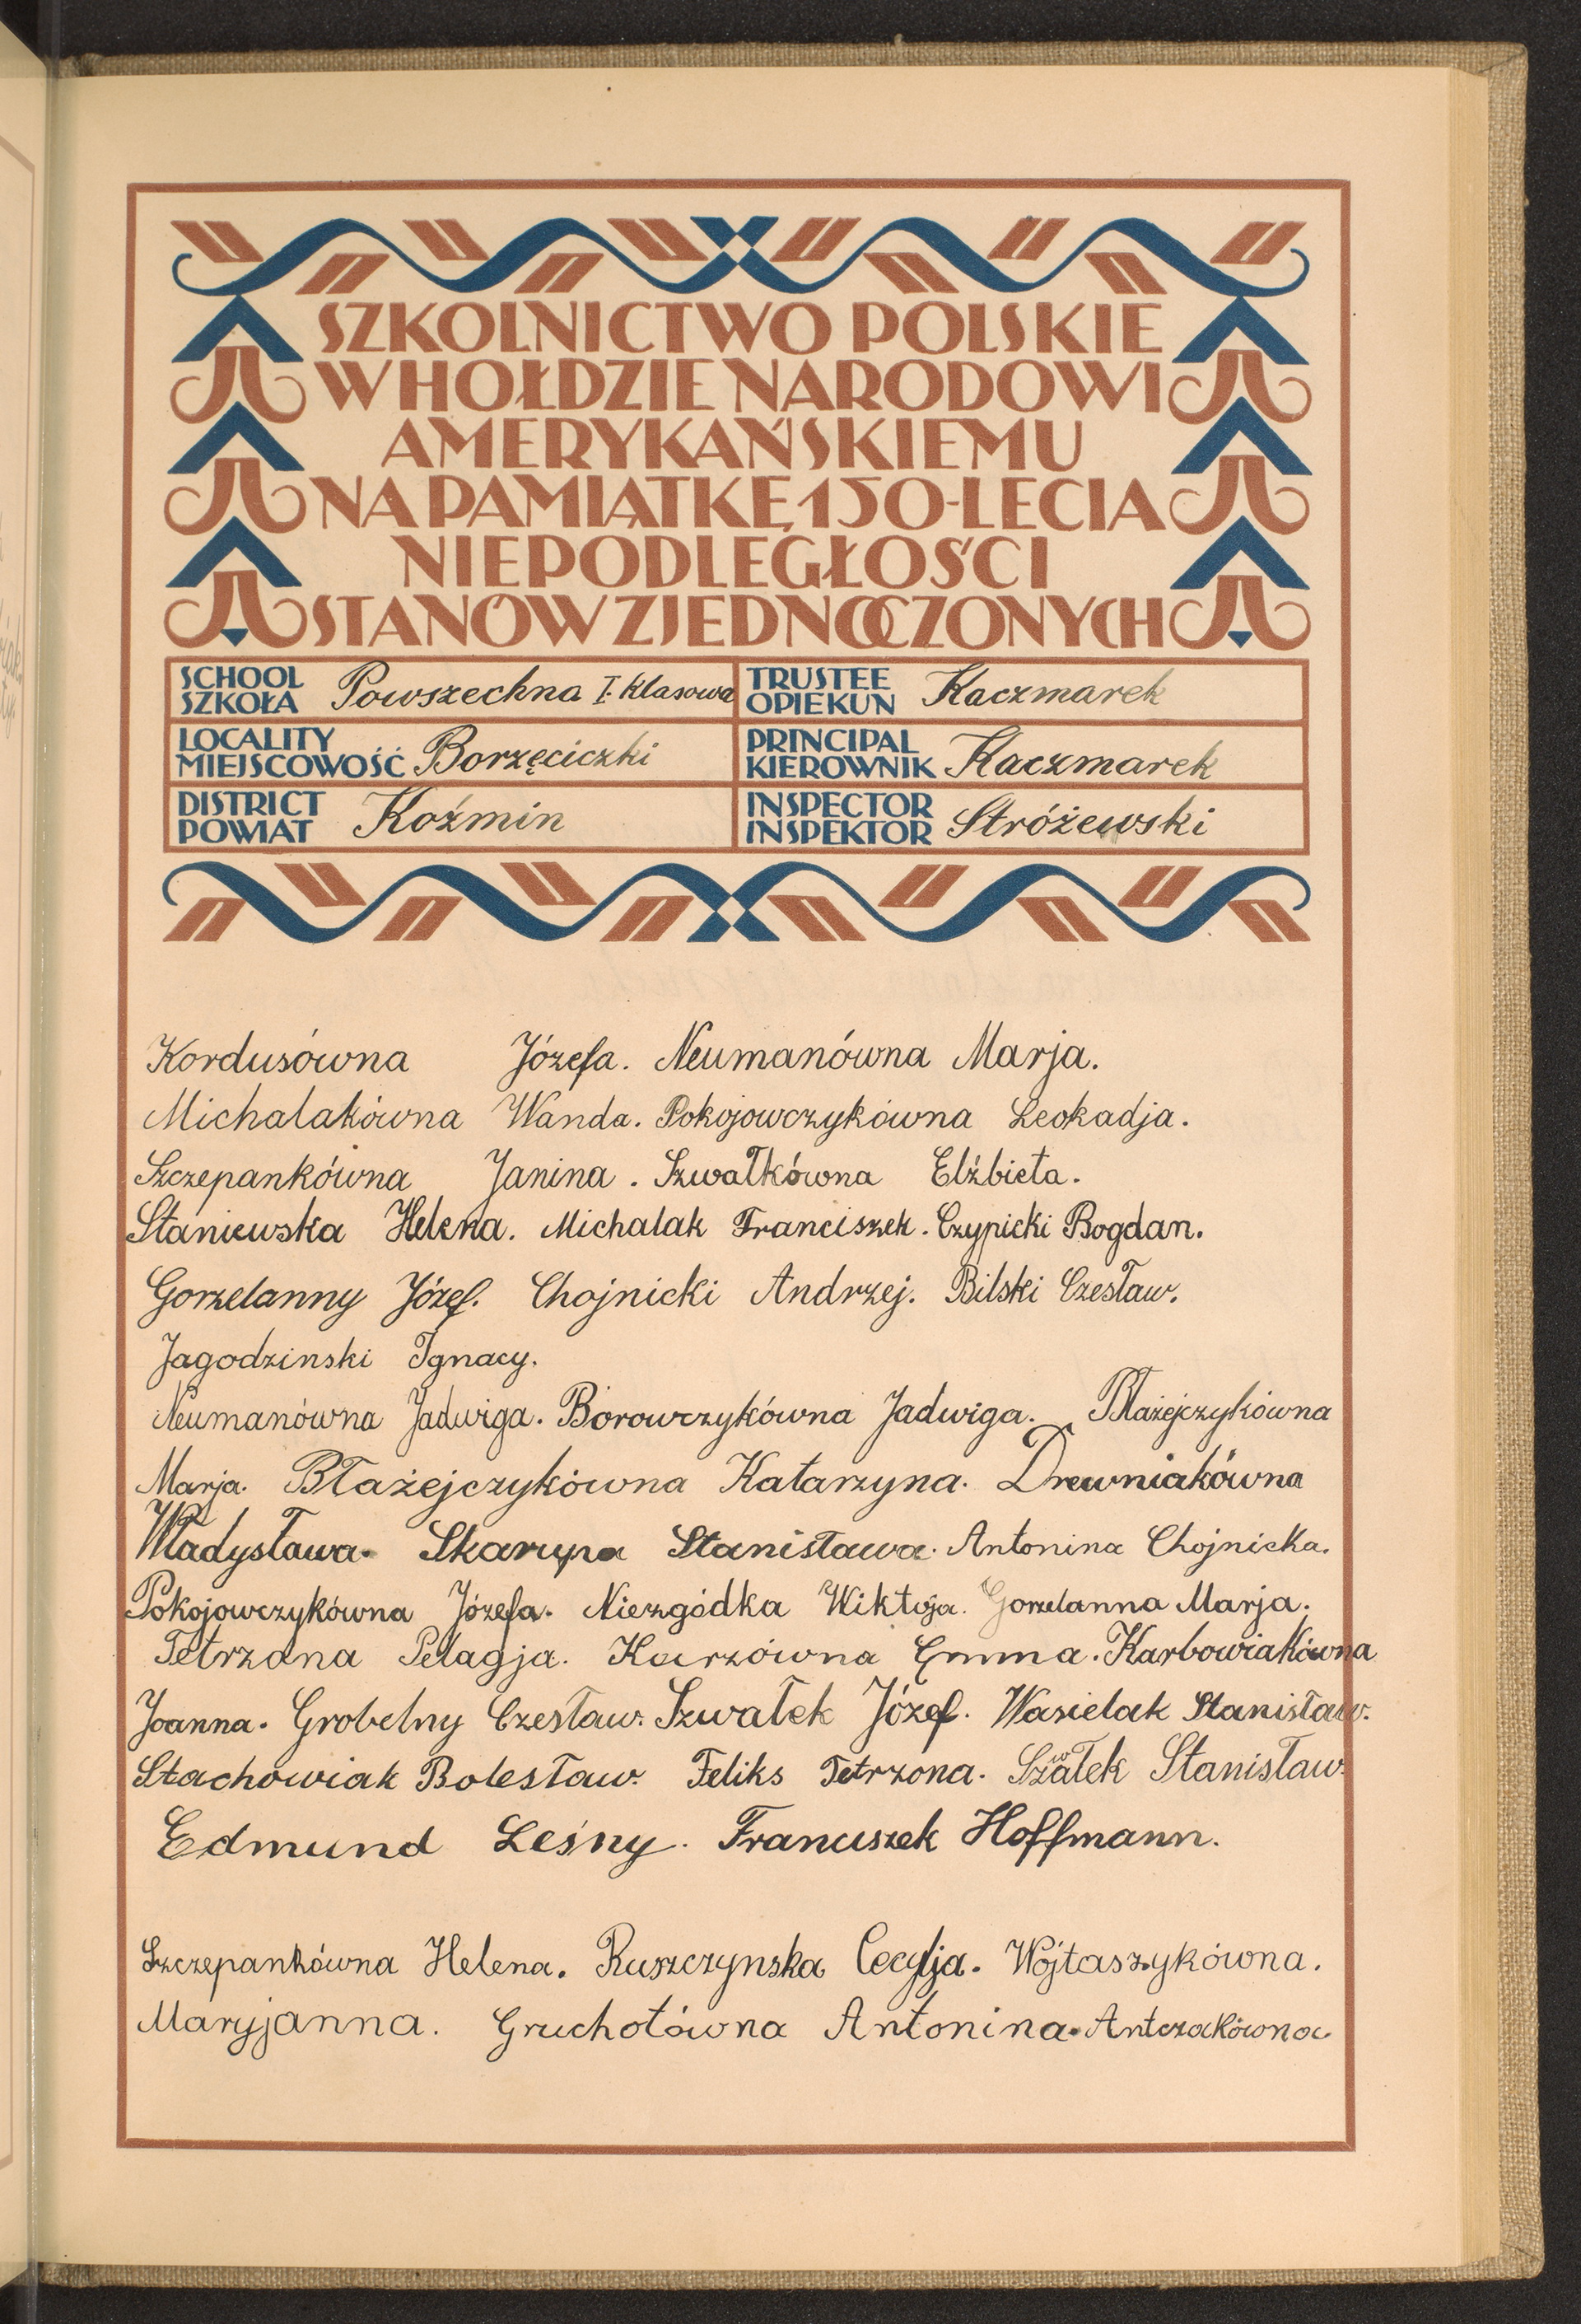 SZKOLNICTWO POLSKIE
W HOŁDZIE NARODOWI
AMERYKAŃSKIEMU
NA PAMIĄTKĘ 150-LECIA
NIEPODLEGŁOŚCI
STANÓW ZJEDNOCZONYCH
SCHOOL
SZKOŁA Powszechna I. klasowa
TRUSTEE
OPIEKUN Kaczmarek
LOCALITY
MIEJSCOWOŚĆ Borzęciczki
PRINCIPAL
KIEROWNIK Kaczmarek
DISTRICT
POWIAT Koźmin
INSPECTOR
INSPEKTOR Stróżewski
Kordusówna Józefa. Neumanówna Marja.
Michalakówna Wanda. Pokojowczykówna Leokadja.
Szczepankówna Janina. Szwałkówna Elżbieta.
Staniewska Helena. Michalak Franciszek. Czypicki Bogdan.
Gorzelanny Józef. Chojnicki Andrzej. Bilski Czesław.
Jagodzinski Ignacy.
Neumanówna Jadwiga. Borowczykówna Jadwiga. Błażejczykówna
Marja. Błażejczykówna Katarzyna. Drewniakówna
Władysława. Skarupa Stanisława. Antonina Chojnicka.
Pokojowczykówna Józefa. Niezgódka Wiktorja. Gorzelanna Marja.
Tetrzona Pelagja. Kurzówna Emma. Karbowiakówna
Joanna. Grobelny Czesław. Szwałek Józef. Wasielak Stanisław.
Stachowiak Bolesław. Feliks Tetrzona. Szwałek Stanisław.
Edmund Leśny. Franciszek Hoffmann.
Szczepankówna Helena. Ruszczynska Cecylja. Wójtaszykówna.
Maryjanna. Gruchotówna Antonina. Antczakówna